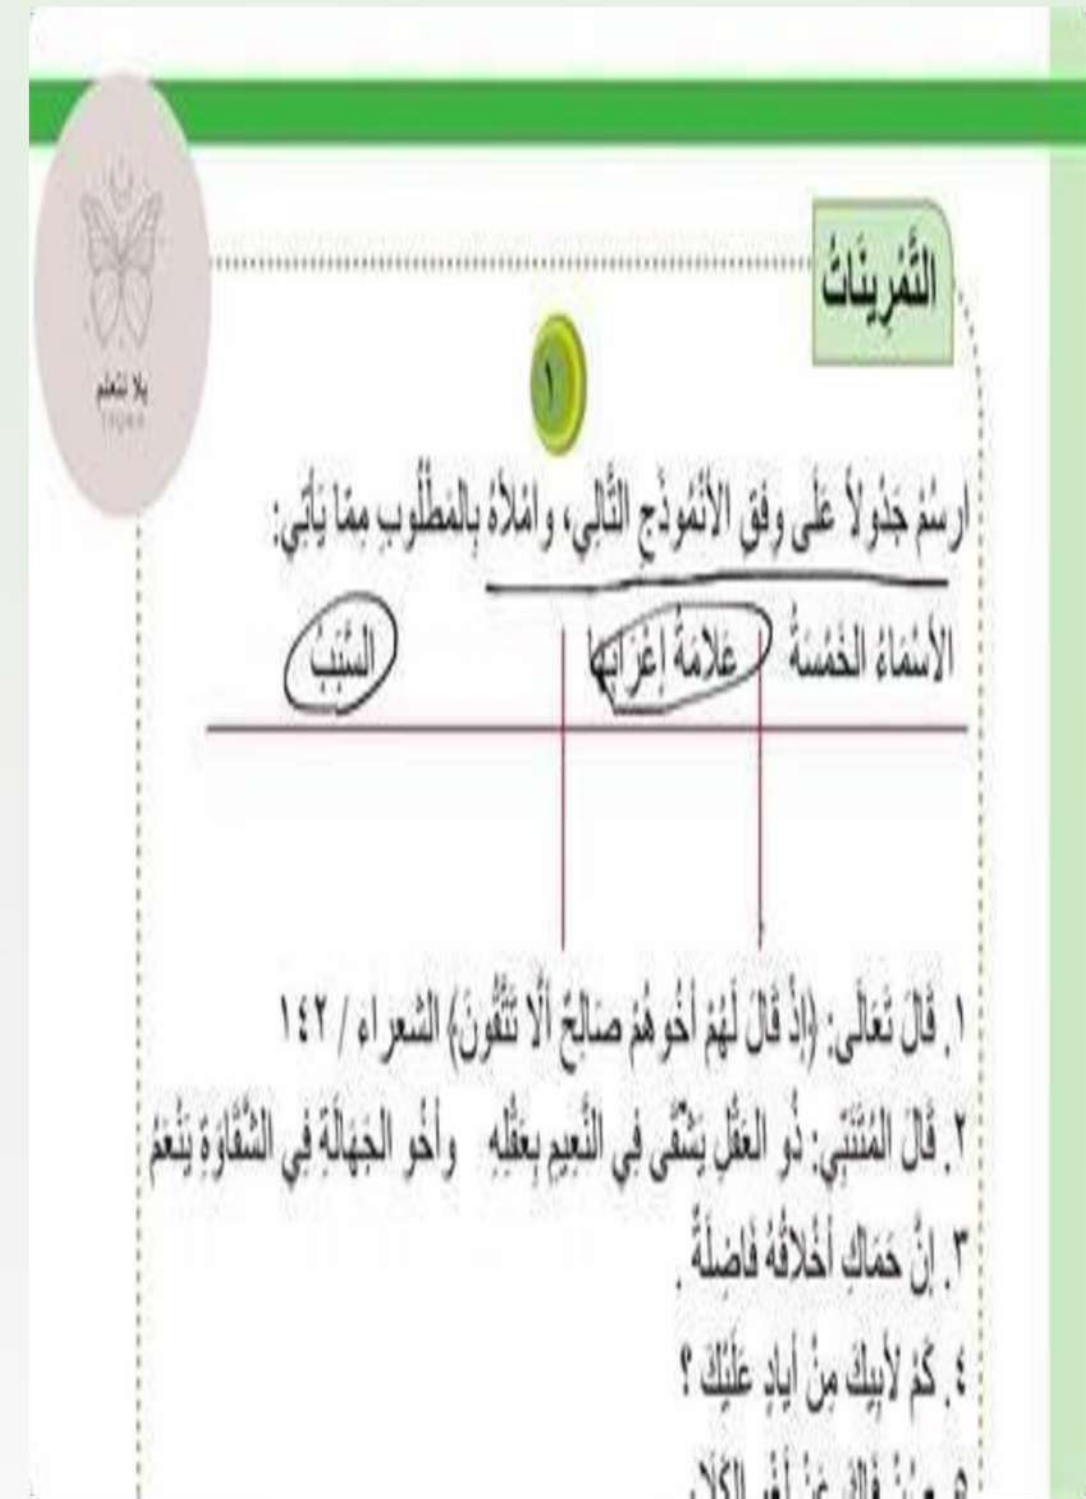 يلا نتعلم
التَّمْرِينَاتُ
١
ارسُمْ جَدْولاً عَلَى وفَقِ الأنْمُوذَجِ التَّالِي، وامْلأهُ بِالمَطْلُوبِ مِمّا يَأتِي:
الأسْمَاءُ الخَمْسَةُ عَلامَةُ إعْرَابِها السَّبَبُ
١. قَالَ تَعَالَى: ﴿إِذْ قَالَ لَهُمْ أخُوهُمْ صَالِحٌ ألَا تَتَّقُونَ﴾ الشعراء / ١٤٢
٢. قَالَ المُتَنَبِّي: ذُو العَقْلِ يَشْقَى فِي النَّعِيمِ بِعَقْلِهِ وأخُو الجَهَالَةِ فِي الشَّقَاوَةِ يَنْعَمُ
٣. إنَّ حَمَاكِ أخْلاقُهُ فَاضِلَةٌ .
٤. كَمْ لأبِيكَ مِنْ أيادٍ عَلَيْكَ ؟
٥ فاكَ عَنْ لَغْوِ